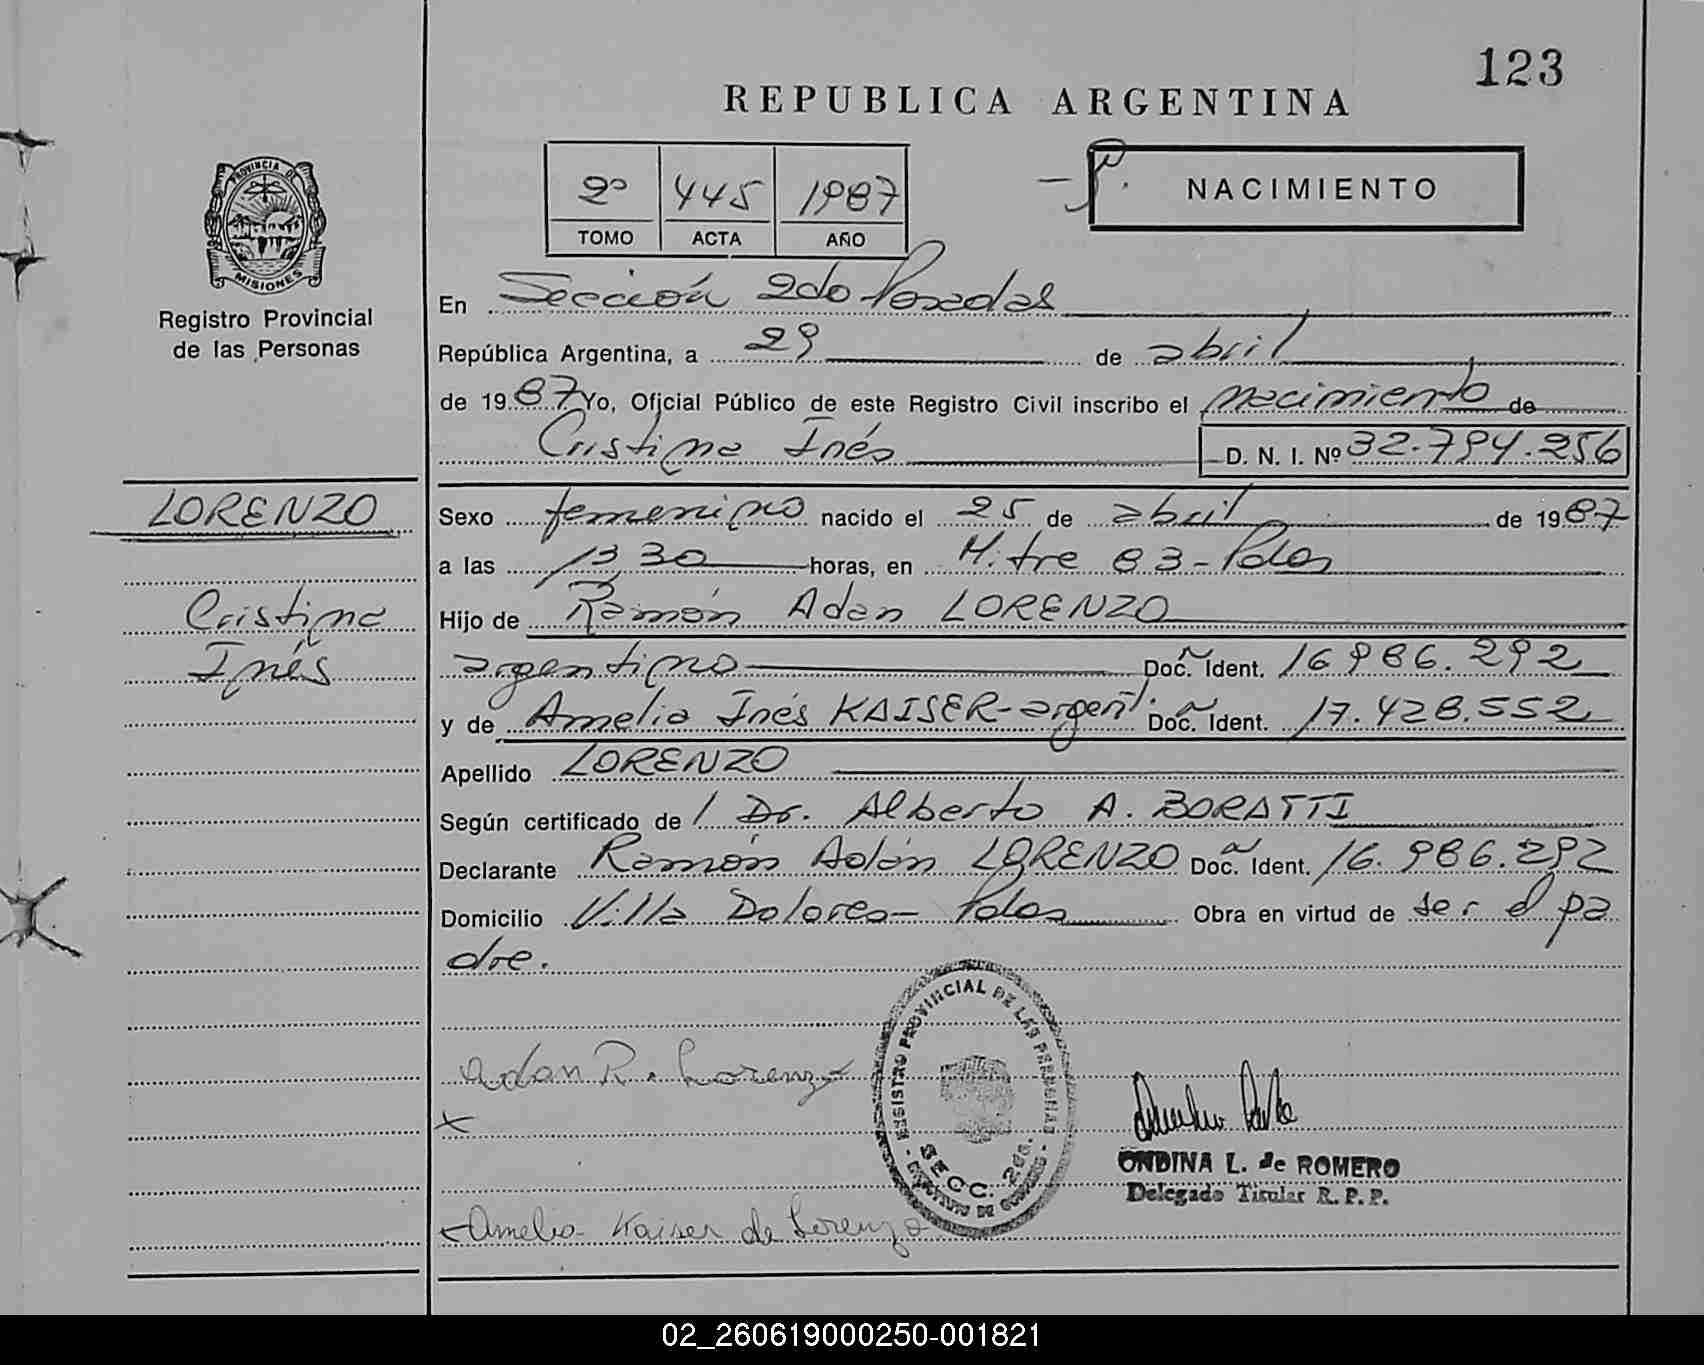 123
REPUBLICA ARGENTINA
2º 445 1987
TOMO ACTA AÑO
NACIMIENTO
PROVINCIA DE
MISIONES
Registro Provincial
de las Personas
En Sección 2do Posadas
República Argentina, a 29 de abril
de 1987 Yo, Oficial Público de este Registro Civil inscribo el nacimiento de
Cristina Inés D. N. I. Nº 32.794.256
LORENZO
Cristina
Inés
Sexo femenino nacido el 25 de abril de 1987
a las 13 30 horas, en Mitre 83 - Pdas
Hijo de Ramón Adan LORENZO
argentino Doc. Ident. 16 986.292
y de Amelia Inés KAISER - argent. Doc. Ident. 17.428.552
Apellido LORENZO
Según certificado de l Dr. Alberto A. BORATTI
Declarante Ramón Adán LORENZO Doc. Ident. 16.986.292
Domicilio Villa Dolores - Pdas Obra en virtud de ser el pa
dre.
Adan R. Lorenzo
REGISTRO PROVINCIAL DE LAS PERSONAS
SECC. 2da.
ONDINA L. de ROMERO
Delegado Titular R. P. P.
Amelia Kaiser de Lorenzo
02_260619000250-001821